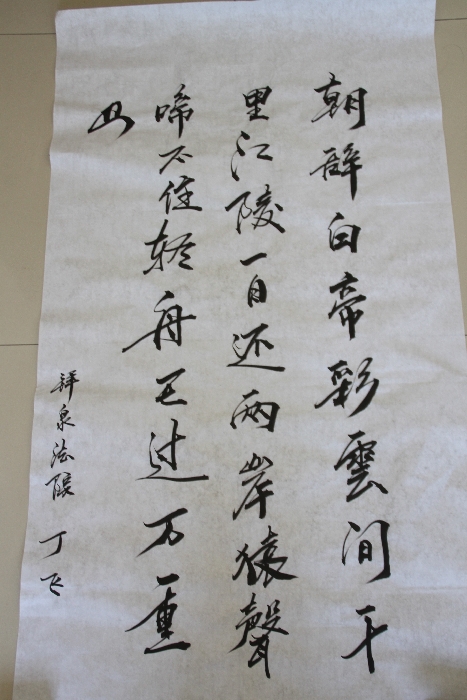 朝辞白帝彩雲间千
里江陵一日还两岸猿聲
啼不住轻舟已过万重
山
拜泉法院 丁飞